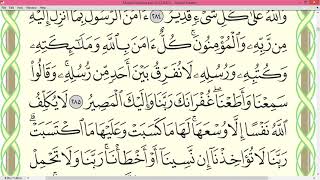 وَاللَّهُ عَلَىٰ كُلِّ شَيْءٍ قَدِيرٌ ﴿٢٨٤﴾ ءَامَنَ الرَّسُولُ بِمَا أُنزِلَ إِلَيْهِ
مِن رَّبِّهِ وَالْمُؤْمِنُونَ ۚ كُلٌّ ءَامَنَ بِاللَّهِ وَمَلَٰٓئِكَتِهِ
وَكُتُبِهِ وَرُسُلِهِ لَا نُفَرِّقُ بَيْنَ أَحَدٍ مِّن رُّسُلِهِ ۚ وَقَالُوا
سَمِعْنَا وَأَطَعْنَا ۖ غُفْرَانَكَ رَبَّنَا وَإِلَيْكَ الْمَصِيرُ ﴿٢٨٥﴾ لَا يُكَلِّفُ
اللَّهُ نَفْسًا إِلَّا وُسْعَهَا ۚ لَهَا مَا كَسَبَتْ وَعَلَيْهَا مَا اكْتَسَبَتْ ۗ
رَبَّنَا لَا تُؤَاخِذْنَا إِن نَّسِينَا أَوْ أَخْطَأْنَا ۚ رَبَّنَا وَلَا تَحْمِلْ